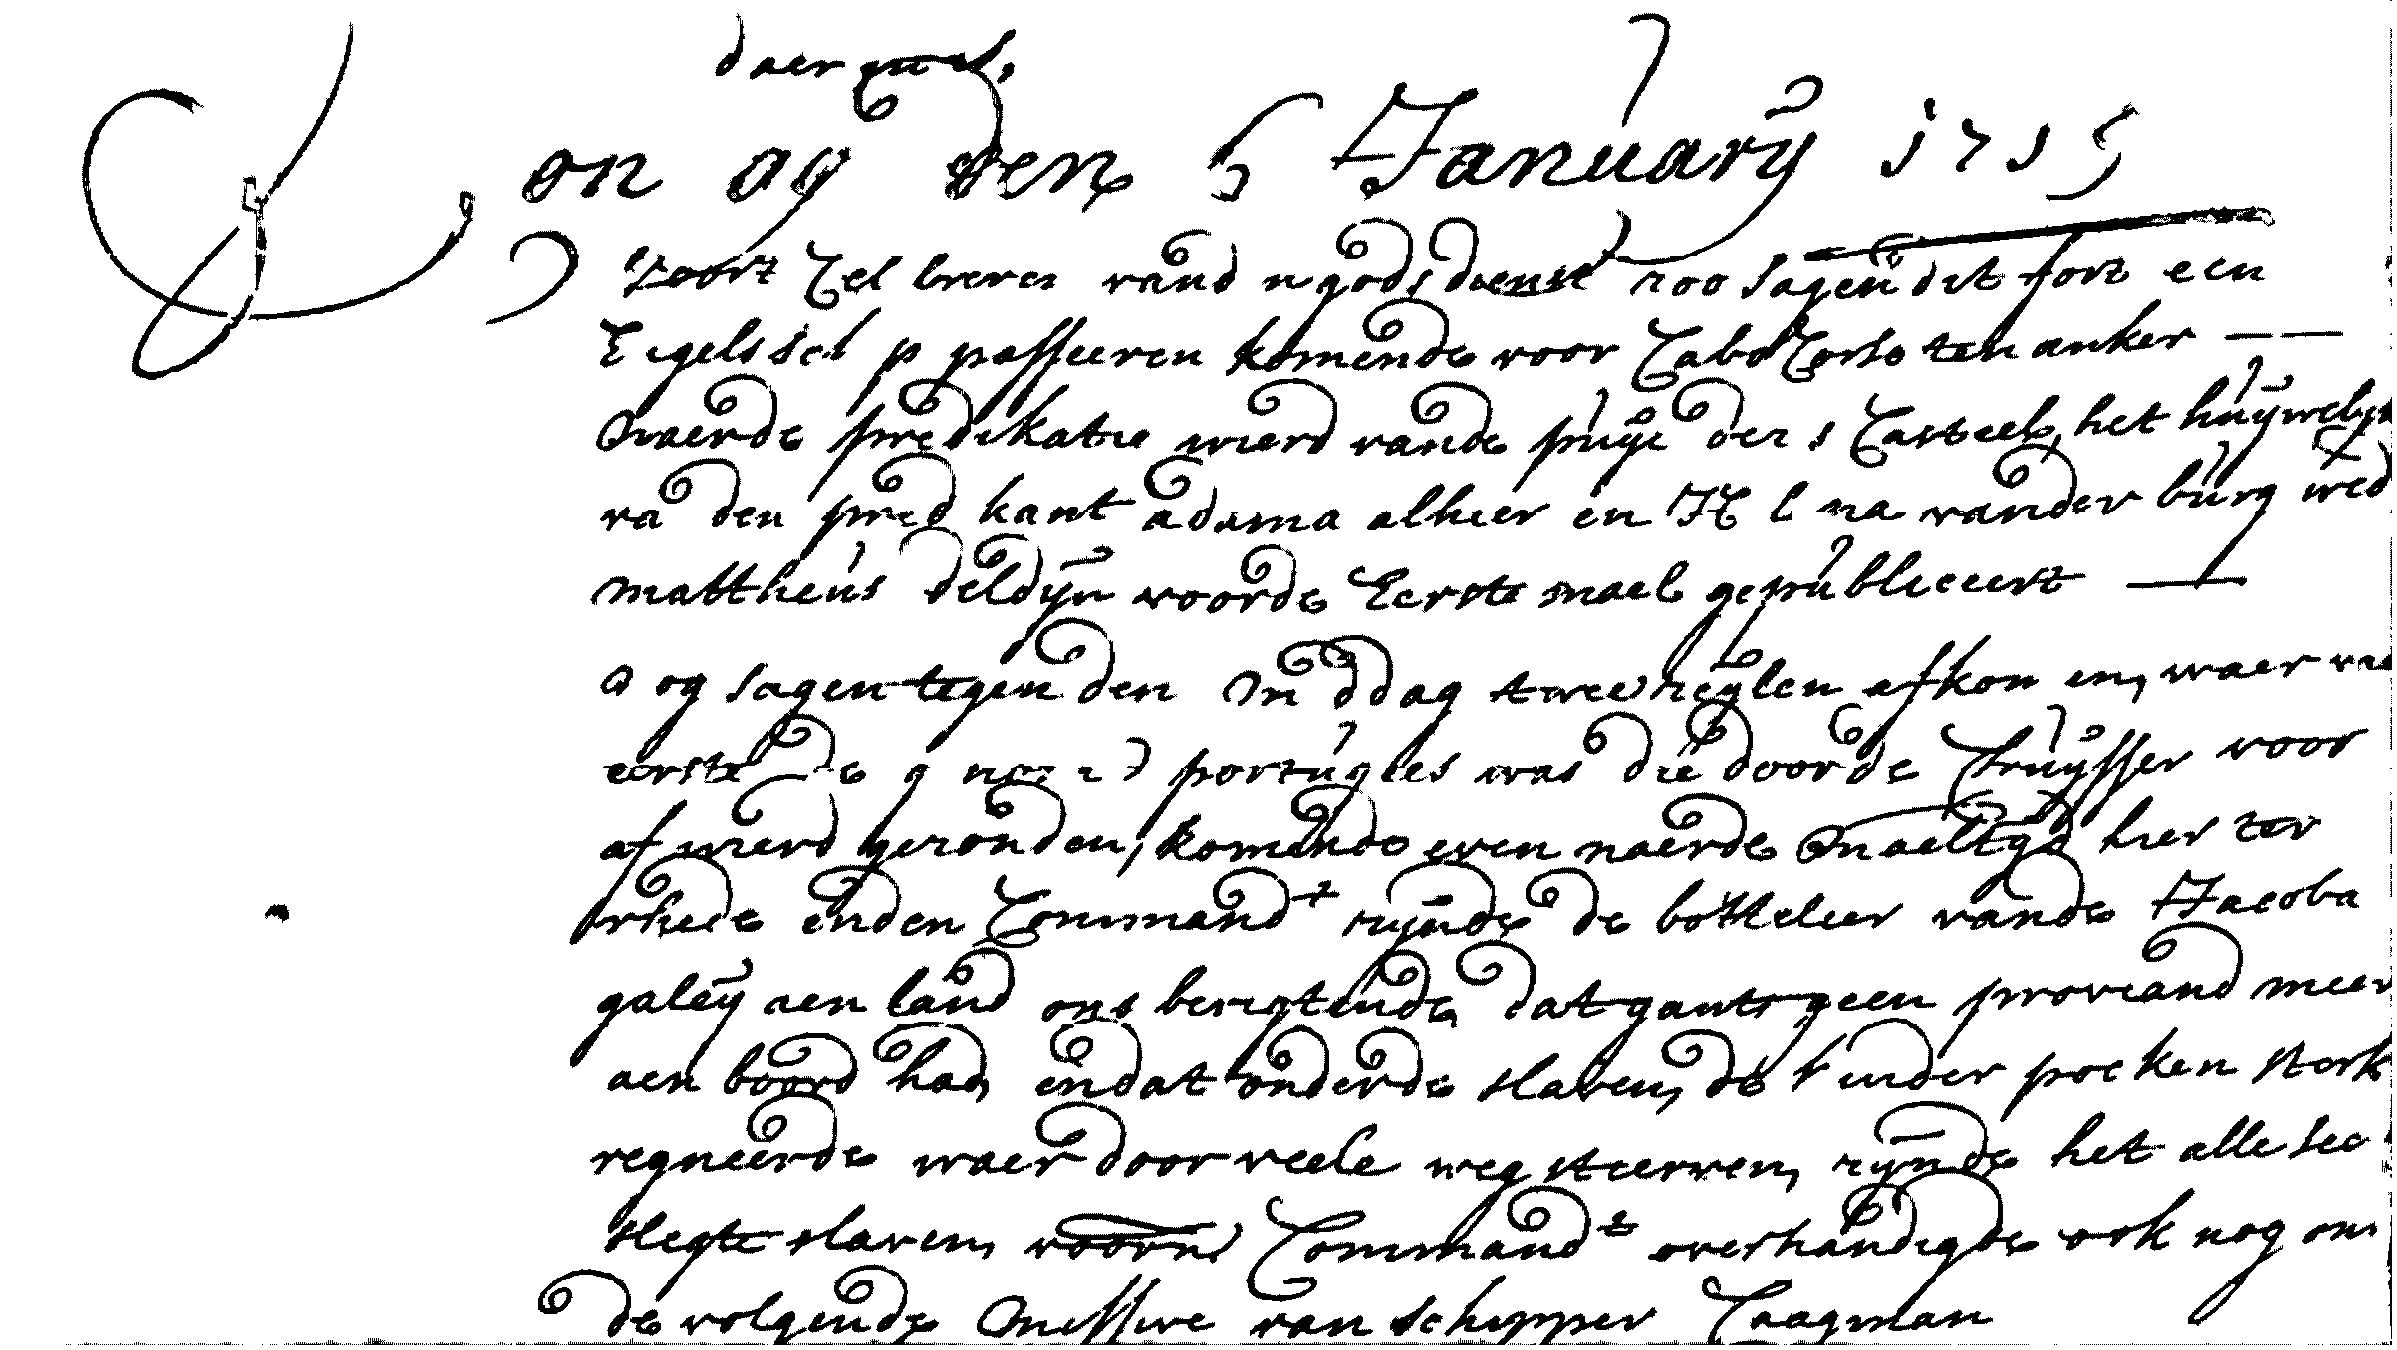 daer mel,
on ag den 6 January 1715
Voort Cel breren vand n godsdienst zoo sagen dit fort een
Eigelssch p passeeren komende voor Cabo Corso ten anker
Naerde predikatie wierd vande puije de s Casteels, het huijwelijk
va den pred kant adama alhier en H l na vander burg wed
mattheus deldijn voorde Eerste mael gepubliceert
Nog sagen tegen den Middag twee zeylen afkomen, waer van
eerste de g portugees was die door de Cruijsser voor
af wierd gezonden, komende even naer de Maeltijd hier ter
rheede en den Command.r zijnde de botteleer vande Jacoba
galeij aen land ons berigtende, dat gants geen proviand meer
aen boord had, en dat onder de slaven, de kinder pocken sterk
regneerde waer door veele weg sterven, zijnde het alle see
slegte slaven, voorn Command.r overhandigde ook nog ons
de volgende Missive van schipper Taagman